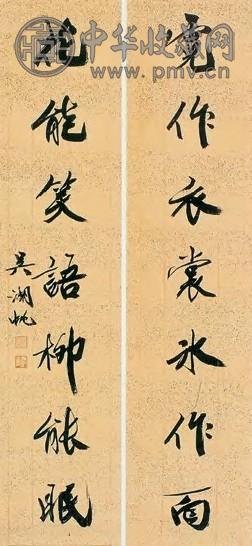 中华收藏网
www.pmv.cn
霓作衣裳冰作面
花能笑語柳能眠
吳湖帆